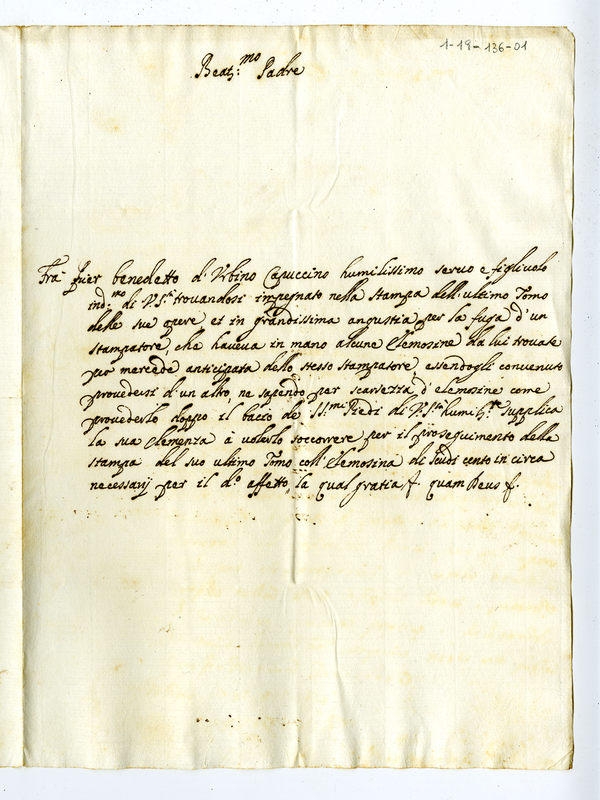 1-19-136-01
Beatᵐᵒ: Padre
Fra Pier benedetto d'Urbino Capuccino humilissimo seruo e figliuolo
ind:ᵐᵒ di V.S.ᵗᵃ trouandosi impegnato nella stampa dell'ultimo Tomo
delle sue opere et in grandissima angustia per la fuga d'un
stampatore, che haueua in mano alcune elemosine da lui trouate
per mercede anticipata dello stesso stampatore, essendogli conuenuto
prouedersi d'un altro, ne sapendo per scarsezza d'elemosine come
prouederlo doppo il bacio de SS.ᵐⁱ Piedi di V.S.ᵗᵃ humilᵗᵉ supplica
la sua Clemenza à uolerlo soccorrere per il proseguimento della
stampa del suo ultimo Tomo coll'elemosina di scudi cento in circa
necessarij per il d.ᵒ effetto, la qual gratia quam Deus